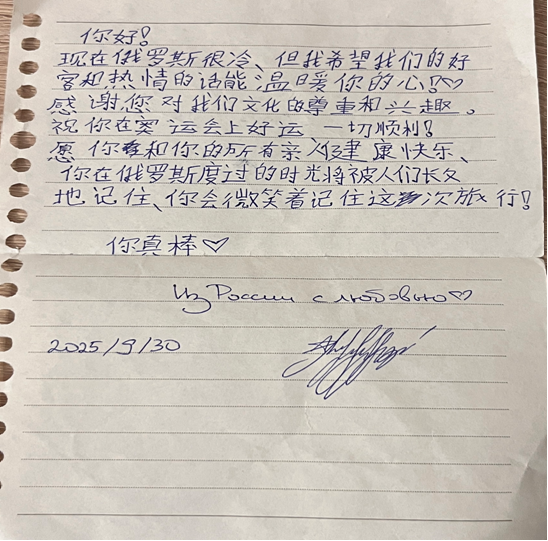 你好!
现在俄罗斯很冷、但我希望我们的好
客和热情的话能温暖你的心!♡
感谢您对我们文化的尊重和兴趣。
祝你在奥运会上好运 一切顺利!
愿你和你的所有亲人健康快乐、
你在俄罗斯度过的时光将被人们长久
地记住、你会微笑着记住这次旅行!
你真棒♡
Из России с любовью♡
2025/9/30